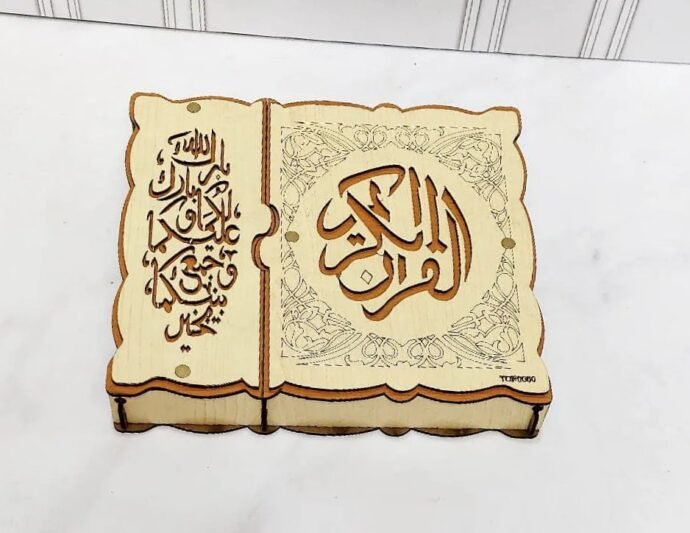 القرآن الكريم
بارك الله
لكما و
بارك
عليكما
وجمع
بينكما
بخير